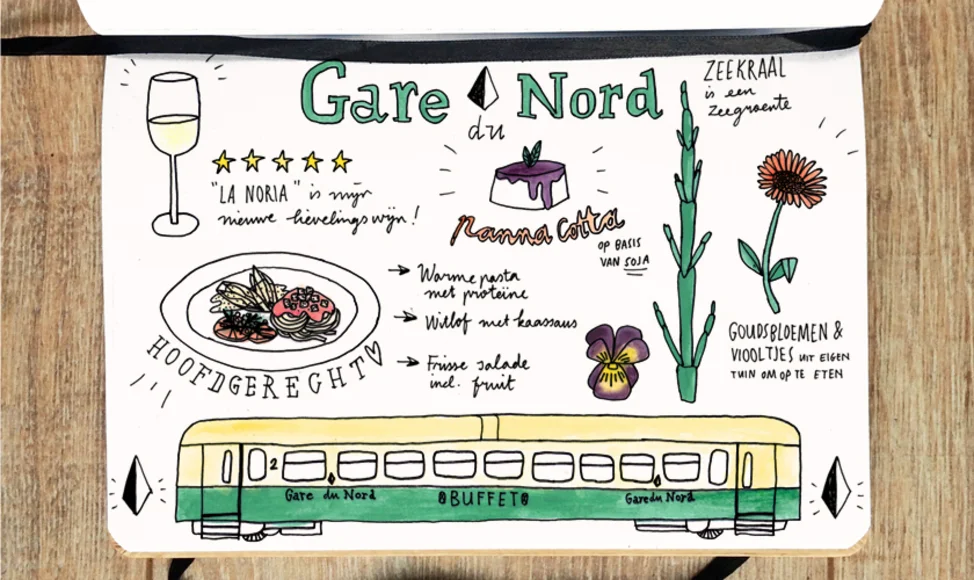 Gare du Nord
ZEEKRAAL
is een
zeegroente
"LA NORIA" is mijn
nieuwe lievelingswijn!
Panna Cotta
OP BASIS
VAN SOJA
Warme pasta
met proteïne
Witlof met kaassaus
Frisse salade
incl. fruit
HOOFDGERECHT
GOUDSBLOEMEN &
VIOOLTJES UIT EIGEN
TUIN OM OP TE ETEN
2
Gare du Nord
BUFFET
Gare du Nord